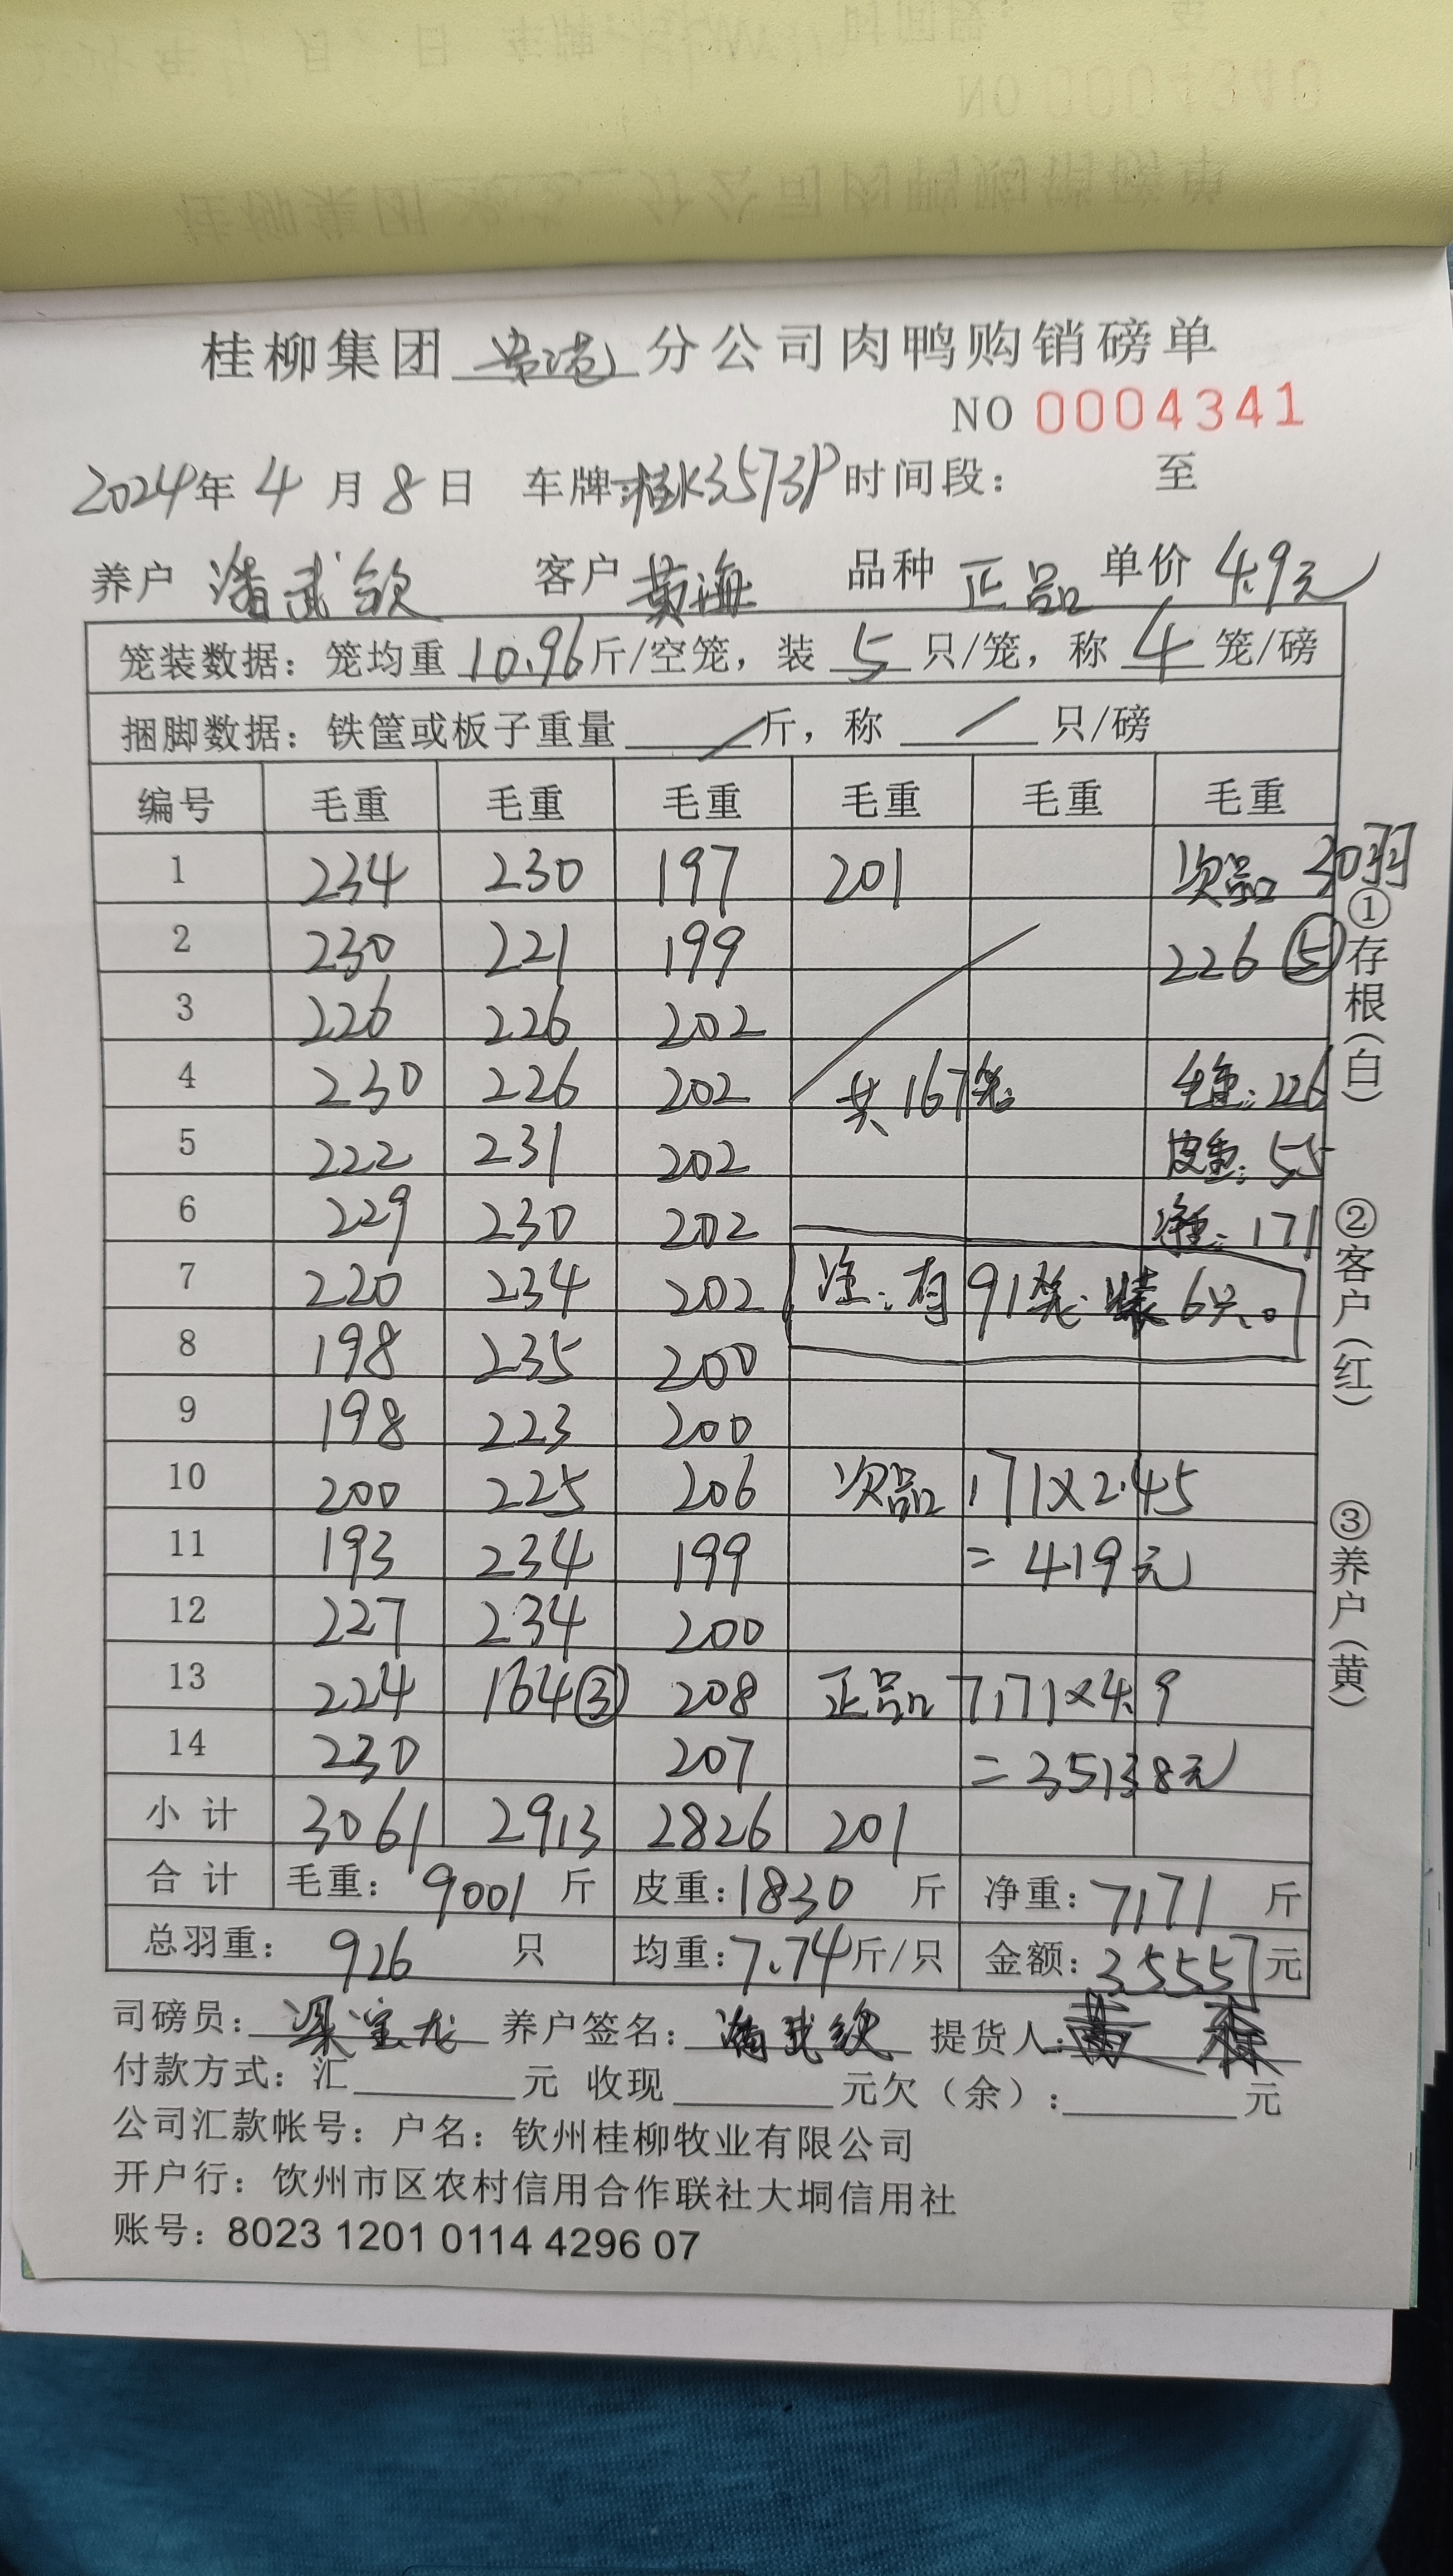 桂柳集团 贵港 分公司肉鸭购销磅单
NO 0004341
2024年 4 月 8 日 车牌:桂K3573P 时间段: 至
养户 潘武钦 客户 黄海 品种 正品 单价 4.9元
笼装数据: 笼均重 10.96 斤/空笼, 装 5 只/笼, 称 4 笼/磅
捆脚数据: 铁筐或板子重量 / 斤, 称 / 只/磅
编号 毛重 毛重 毛重 毛重 毛重 毛重
1 234 230 197 201 次品 30羽
2 230 221 199 226 ⑤
3 226 226 202
4 230 226 202 共167笼 毛重:226
5 222 231 202 皮重:55
6 229 230 202 净重:171
7 220 234 202 注:有91笼装6只。
8 198 235 200
9 198 223 200
10 200 225 206 次品 171×2.45
11 193 234 199 = 419元
12 227 234 200
13 224 164③ 208 正品 7171×4.9
14 230 207 = 35138元
小计 3061 2913 2826 201
合计 毛重: 9001 斤 皮重: 1830 斤 净重: 7171 斤
总羽重: 926 只 均重: 7.74 斤/只 金额: 35557 元
司磅员: 梁宝龙 养户签名: 潘武钦 提货人: 黄
付款方式: 汇 元 收现 元欠(余): 元
公司汇款帐号: 户名: 钦州桂柳牧业有限公司
开户行: 饮州市区农村信用合作联社大垌信用社
账号: 8023 1201 0114 4296 07
①存根(白)
②客户(红)
③养户(黄)